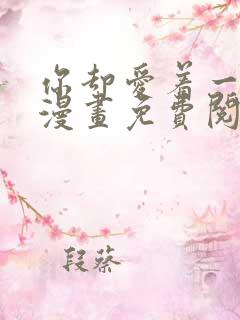 你却愛着一
漫畫免費閱
段蔡